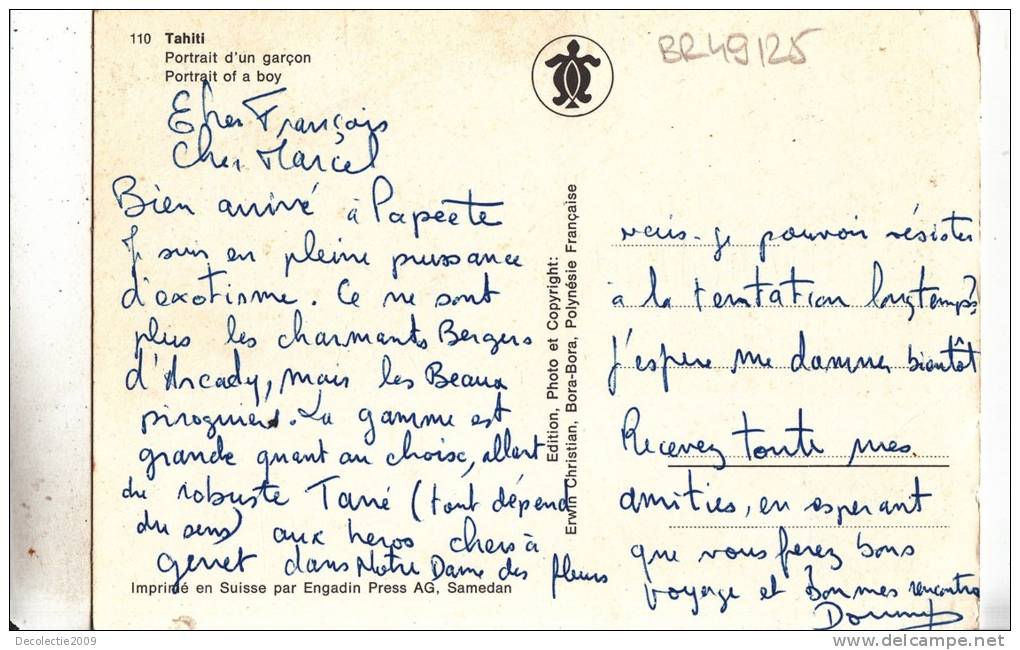 110 Tahiti
Portrait d'un garçon
Portrait of a boy
BR49125
Cher François
Cher Marcel
Bien arrivé à Papeete
Je suis en pleine puissance
d'exotisme. Ce ne sont
plus les charmants Bergers
d'Arcady, mais les Beaux
piroguiers. La gamme est
grande quant au choix, allant
du robuste Tané (tout dépend
du sens) aux heros chers à
genet dans Notre Dame des fleurs
Imprimé en Suisse par Engadin Press AG, Samedan
Edition, Photo et Copyright:
Erwin Christian, Bora-Bora, Polynésie Française
vais-je pouvoir résister
à la tentation longtemps?
J'espere me damner bientôt
Recevez toute mes
amities, en esperant
que vous ferez bons
voyage et Bonnes rencontres
Decolectie2009
delcampe.net